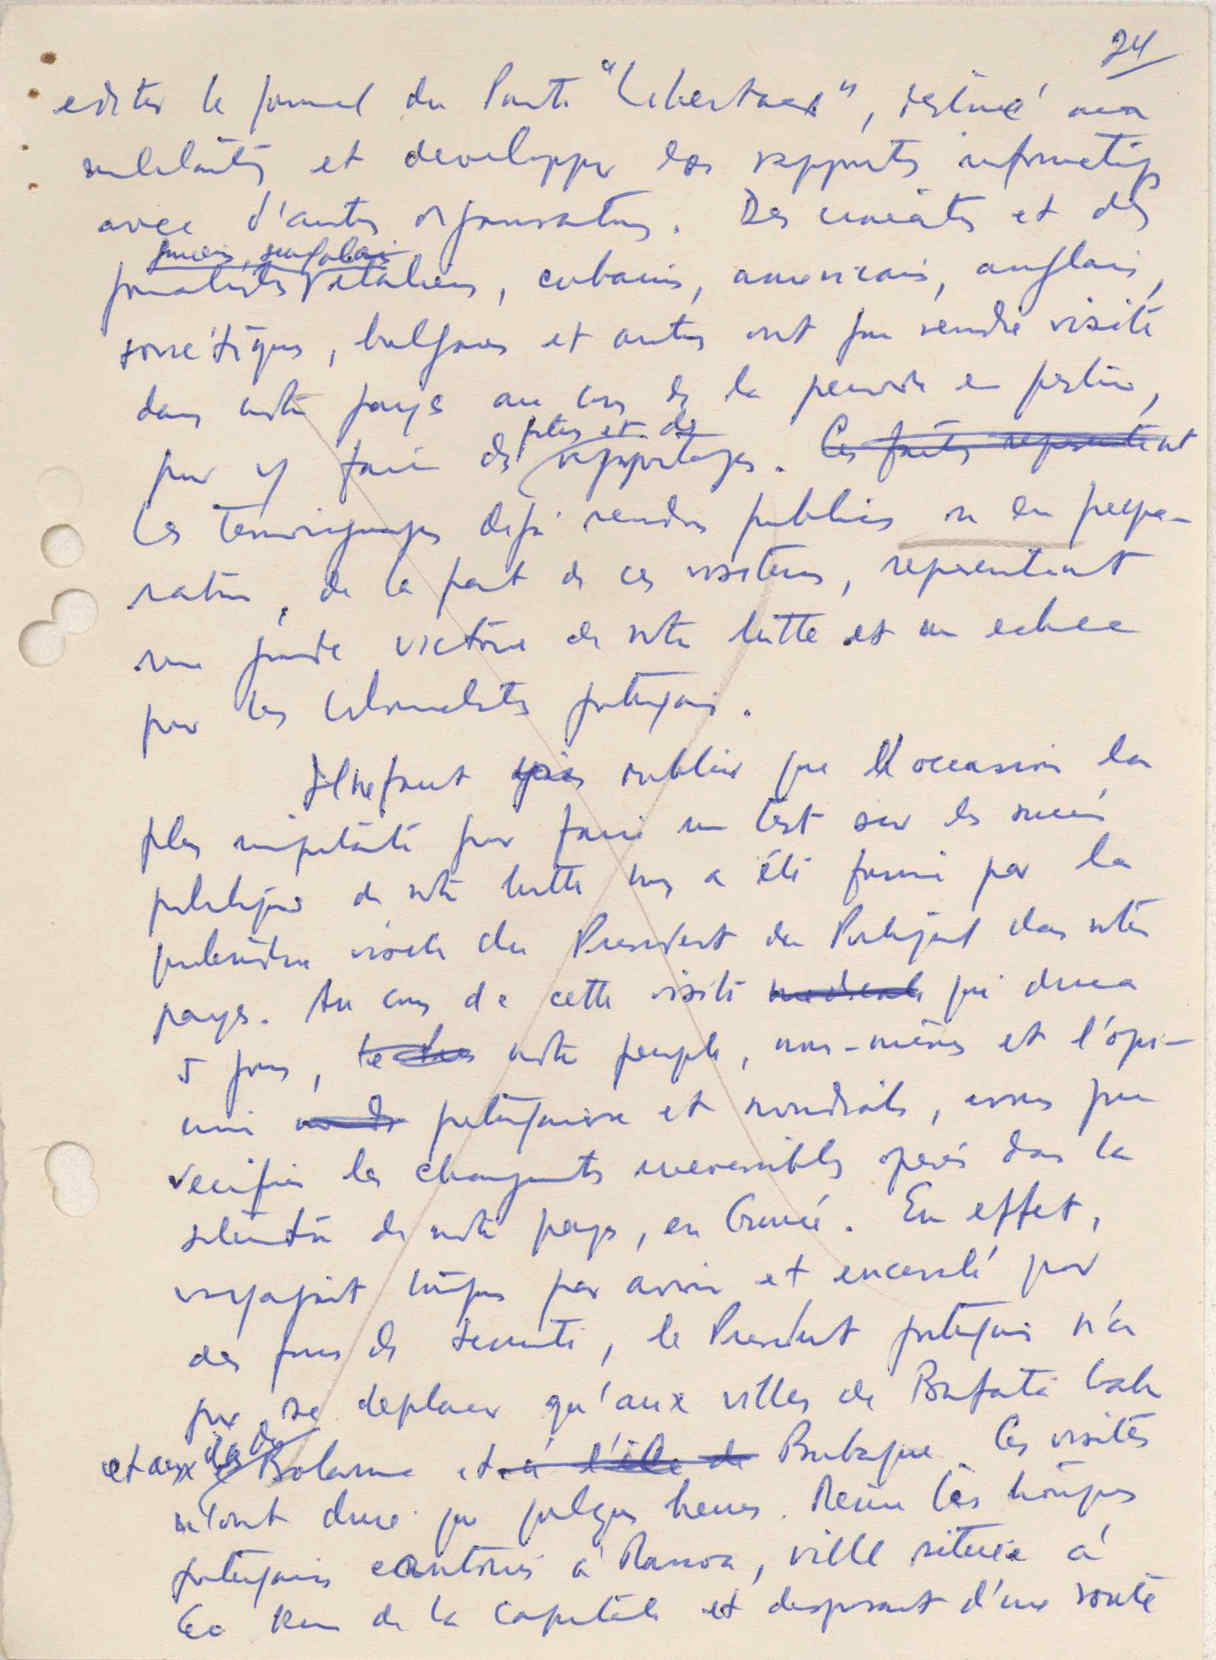 24
editer le journal du Parti "Libertaçao", destiné aux
militants et developper les rapports informatifs
avec d'autres organisations. Des cinéastes et des
français, senegalais
journalistes italiens, cubains, americains, anglais,
sovietiques, bulgares et autres ont pu rendre visite
dans notre pays au cours de la periode en question,
films et de
pour y faire des repportages. Ces faits representent
Les temoignages dejà rendus publics ou en prepa-
ration, de la part de ces visiteurs, representent
une grande victoire de notre lutte et un echec
pour les colonialistes portugais.
Il ne faut pas oublier que l'occasion la
plus importante pour faire un test sur les succès
politiques de notre lutte nous a été fourni par la
pretendue visite du President du Portugal dans notre
pays. Au cours de cette visite qui dura
5 jours, notre peuple, nous-mêmes et l'opi-
nion portugaise et mondiale, avons pu
verifier les changements irreversibles operés dans la
situation de notre pays, en Guinée. En effet,
voyageant toujours par avion et encerclé par
des forces de securité, le President portugais n'a
pu se deplacer qu'aux villes de Bafatá
et aux iles de Bolama et à l'île de Bubaque. Ces visites
n'ont duré que quelques heures. Même les troupes
portugaises cantonnés à Mansoa, ville située à
60 Km de la capitale et disposant d'une route